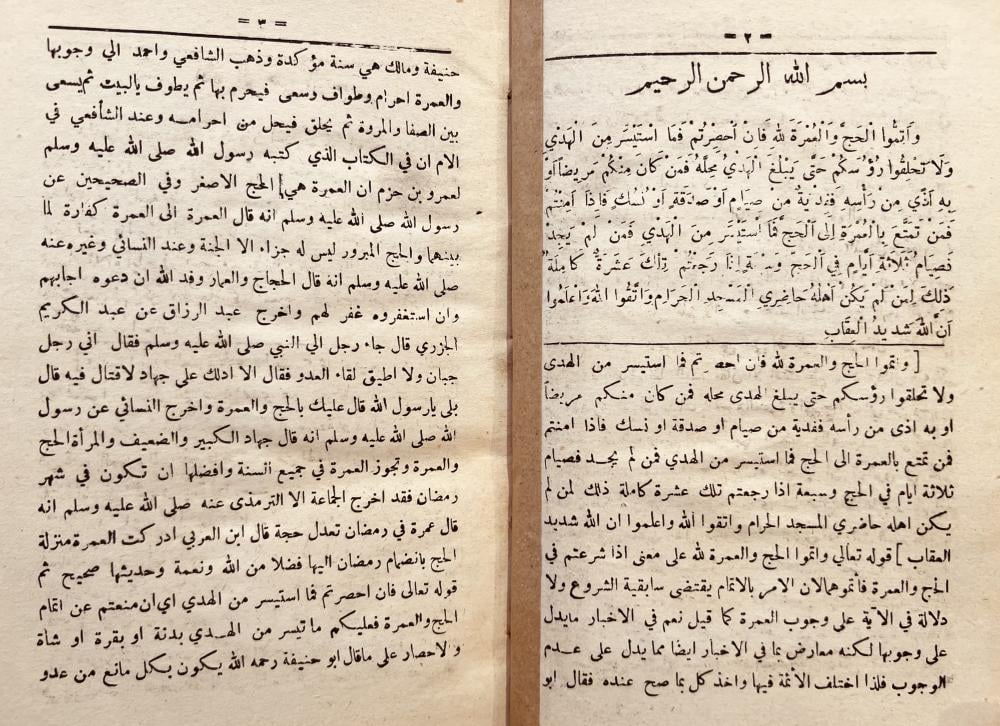 = ٢ =
بسم الله الرحمن الرحيم
وَأَتِمُّوا الْحَجَّ وَالْعُمْرَةَ لِلّٰهِ فَانْ أُحْصِرْتُمْ فَمَا اسْتَيْسَرَ مِنَ الْهَدْيِ
وَلَا تَحْلِقُوا رُؤُسَكُمْ حَتَّى يَبْلُغَ الْهَدْيُ مَحِلَّهُ فَمَنْ كَانَ مِنْكُمْ مَرِيضاً أَوْ
بِهِ أَذًى مِنْ رَأْسِهِ فَفِدْيَةٌ مِنْ صِيَامٍ أَوْ صَدَقَةٍ أَوْ نُسُكٍ فَإِذَا أَمِنْتُمْ
فَمَنْ تَمَتَّعَ بِالْعُمْرَةِ إِلَى الْحَجِّ فَمَا اسْتَيْسَرَ مِنَ الْهَدْيِ فَمَنْ لَمْ يَجِدْ
فَصِيَامُ ثَلَاثَةِ أَيَّامٍ فِي الْحَجِّ وَسَبْعَةٍ إِذَا رَجَعْتُمْ تِلْكَ عَشَرَةٌ كَامِلَةٌ
ذَلِكَ لِمَنْ لَمْ يَكُنْ أَهْلُهُ حَاضِرِي الْمَسْجِدِ الْحَرَامِ وَاتَّقُوا اللهَ وَاعْلَمُوا
أَنَّ اللهَ شَدِيدُ الْعِقَابِ
[ واتموا الحج والعمرة لله فان احصرتم فما استيسر من الهدى
ولا تحلقوا رؤسكم حتى يبلغ الهدى محله فمن كان منكم مريضاً
او به اذى من رأسه ففدية من صيام او صدقة او نسك فاذا امنتم
فمن تمتع بالعمرة الى الحج فما استيسر من الهدي فمن لم يجد فصيام
ثلاثة ايام في الحج وسبعة اذا رجعتم تلك عشرة كاملة ذلك لمن لم
يكن اهله حاضري المسجد الحرام واتقوا الله واعلموا ان الله شديد
العقاب ] قوله تعالي واتموا الحج والعمرة لله على معنى اذا شرعتم في
الحج والعمرة فأتموهما لان الامر بالاتمام يقتضى سابقية الشروع ولا
دلالة في الآية على وجوب العمرة كما قيل نعم في الاخبار مايدل
على وجوبها لكنه معارض بما في الاخبار ايضا مما يدل على عدم
الوجوب فلذا اختلف الأئمة فيها واخذ كل بما صح عنده فقال ابو
= ٣ =
حنيفة ومالك هي سنة مؤكدة وذهب الشافعي واحمد الي وجوبها
والعمرة احرام وطواف وسعى فيحرم بها ثم يطوف بالبيت ثم يسعى
بين الصفا والمروة ثم يحلق فيحل من احرامه وعند الشافعي في
الام ان في الكتاب الذي كتبه رسول الله صلى الله عليه وسلم
لعمرو بن حزم ان العمرة هي الحج الاصغر وفي الصحيحين عن
رسول الله صلى الله عليه وسلم انه قال العمرة الى العمرة كفارة لما
بينهما والحج المبرور ليس له جزاء الا الجنة وعند النسائي وغيره عنه
صلى الله عليه وسلم انه قال الحجاج والعمار وفد الله ان دعوه اجابهم
وان استغفروه غفر لهم واخرج عبد الرزاق عن عبد الكريم
الجزري قال جاء رجل الي النبي صلى الله عليه وسلم فقال اني رجل
جبان ولا اطيق لقاء العدو فقال الا ادلك على جهاد لاقتال فيه قال
بلى يارسول الله قال عليك بالحج والعمرة واخرج النسائي عن رسول
الله صلى الله عليه وسلم انه قال جهاد الكبير والضعيف والمرأة الحج
والعمرة وتجوز العمرة في جميع السنة وافضلها ان تكون في شهر
رمضان فقد اخرج الجماعة الا الترمذى عنه صلى الله عليه وسلم انه
قال عمرة في رمضان تعدل حجة قال ابن العربي ادركت العمرة منزلة
الحج بانضمام رمضان اليها فضلا من الله ونعمة وحديثها صحيح ثم
قوله تعالى فان احصرتم فما استيسر من الهدي اي ان منعتم عن اتمام
الحج والعمرة فعليكم ماتيسر من الهدي بدنة او بقرة او شأة
والاحصار على ماقال ابو حنيفة رحمه الله يكون بكل مانع من عدو